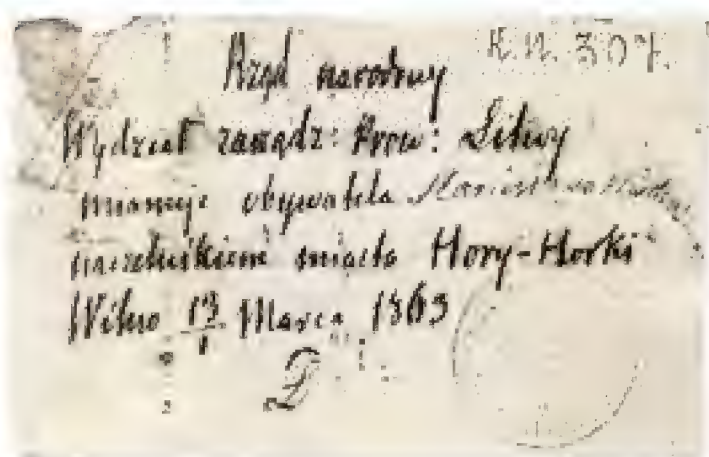 K. N. 307.
Rząd narodowy
Wydział zarządz: Prow: Litwy
mianuje obywatela
naczelnikiem miasta Hory-Horki
Wilno 13/1 Marca 1863